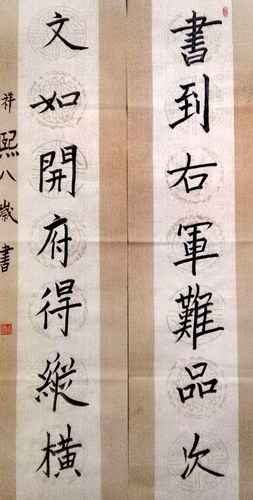 書到右軍難品次
文如開府得縱橫
祥熙八歲書